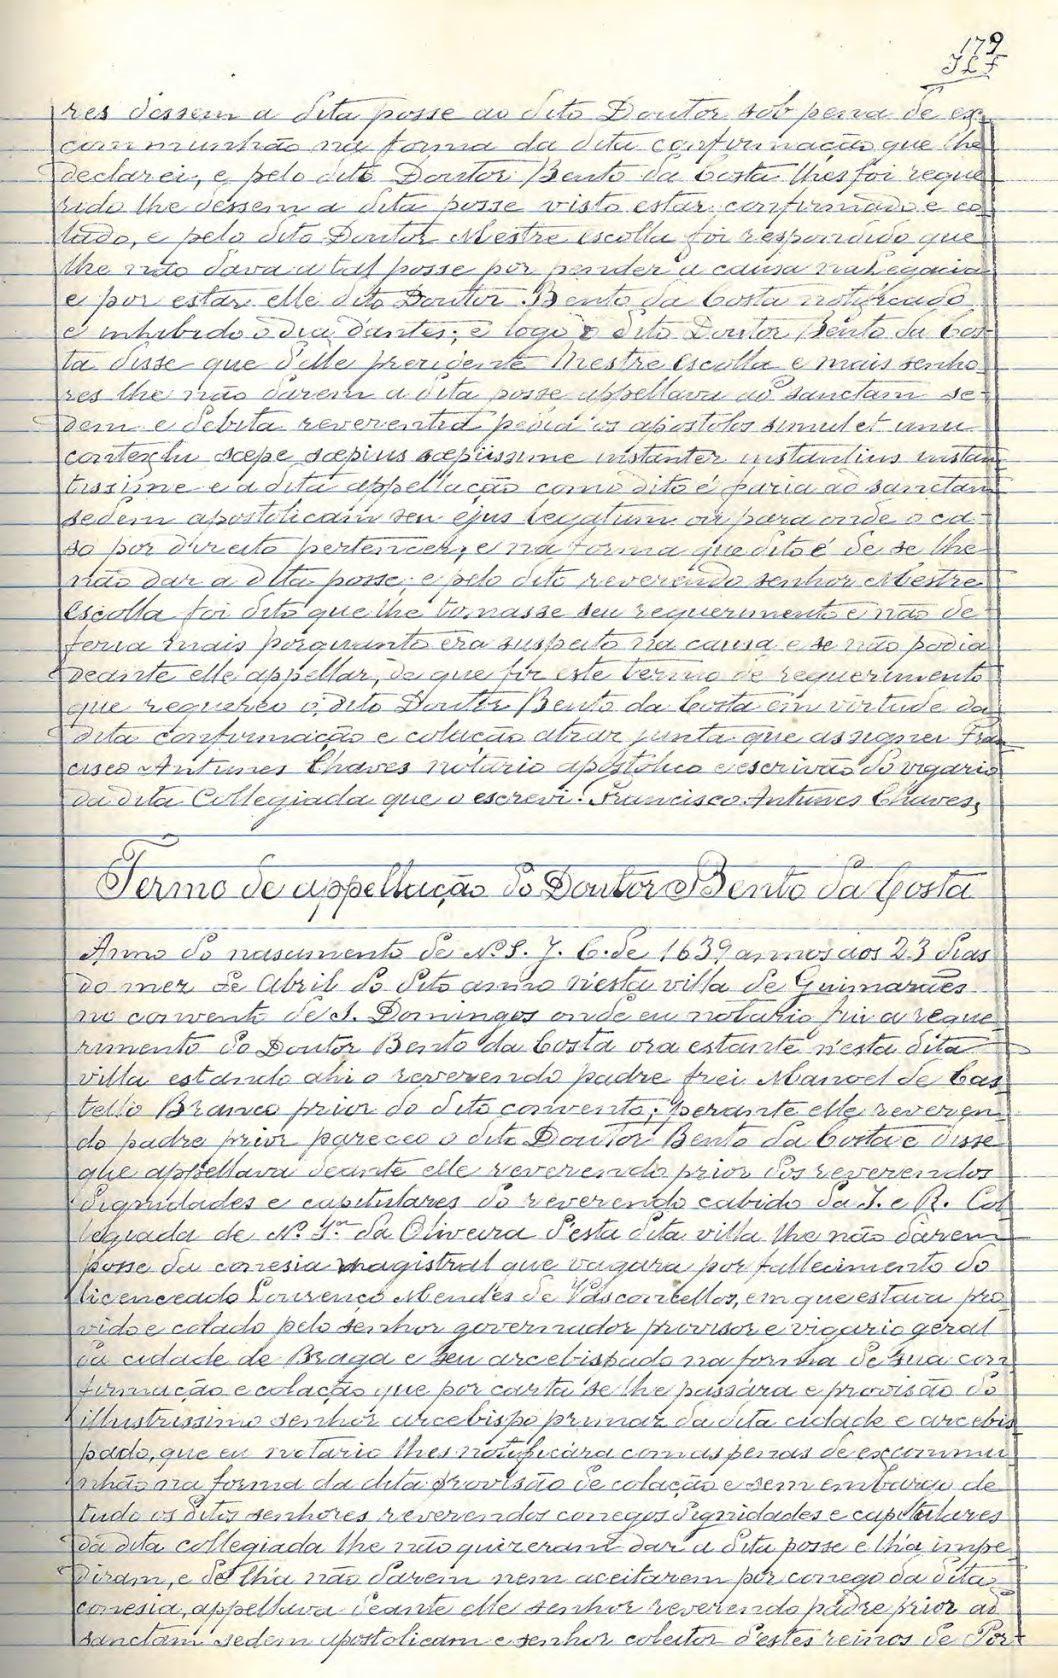 179
J L F
res dessem a dita posse ao dito Doutor sob pena de ex-
communhão na forma da dita confirmação que lhe
declarei, e pelo dito Doutor Bento da Costa lhes foi reque
rido lhe dessem a dita posse visto estar confirmado e co
lado, e pelo dito Doutor Mestre escolla foi respondido que
lhe não dava a tal posse por pender a causa na Legacia
e por estar elle dito Doutor Bento da Costa notificado
e inhibido o dia d'antes; e logo o dito Doutor Bento da Cos-
ta disse que d'elle presidente Mestre escolla e mais senho
res lhe não darem a dita posse appellava ad sanctam se-
dem e debita reverentia pedia os apostolos simul et unu
contextu sæpe sæpius sæpiissime instanter instantius instan
tissime e a dita appellação como dito é fazia ad sanctam
sedem apostolicam seu ejus legatum ou para onde o ca-
so por direito pertencer, e na forma que dito é de se lhe
não dar a dita posse; e pelo dito reverendo senhor Mestre
escolla foi dito que lhe tomasse seu requerimento e não de
feria mais porquanto era suspeito na causa e se não podia
deante elle appellar, de que fiz este termo de requerimento
que requereo o dito Doutor Bento da Costa em virtude da
dita confirmação e colação atraz junta que assignei Fran
cisco Antunes Chaves notario apostolico e escrivão do vigario
da dita Collegiada que o escrevi. Francisco Antunes Chaves,
Termo de appellação do Doutor Bento da Costa
Anno do nascimento de N. S. J. C. de 1639 annos aos 23 dias
do mez de Abril do dito anno n'esta villa de Guimarães
no convento de S. Domingos onde eu notario fui a reque
rimento do Doutor Bento da Costa ora estante n'esta dita
villa estando ahi o reverendo padre frei Manoel de Cas
tello Branco prior do dito convento; perante elle reveren
do padre prior pareceo o dito Doutor Bento da Costa e disse
que appellava deante elle reverendo prior dos reverendos
dignidades e capitulares do reverendo cabido da I. e R. Col
legiada de N. Sra. da Oliveira d'esta dita villa lhe não darem
posse da conesia magistral que vagara por fallecimento do
licenceado Lourenço Mendes de Vasconbellos, em que estava pro
vido e colado pelo senhor governador provisor e vigario geral
da cidade de Braga e seu arcebispado na forma de sua con
firmação e colação que por carta se lhe passára e provisão do
illustrissimo senhor arcebispo primaz da dita cidade e arcebis
pado, que eu notario lhes notificára com as penas de excommu
nhão na forma da dita provisão de colação e sem embargo de
tudo os ditos senhores reverendos conegos dignidades e capitulares
da dita collegiada lhe não quizeram dar a dita posse e lh'a impe
diram, e de lh'a não darem nem aceitarem por conego da dita
conesia, appellava deante elle senhor reverendo padre prior ad
sanctam sedem apostolicam e senhor coleitor d'estes reinos de Por-